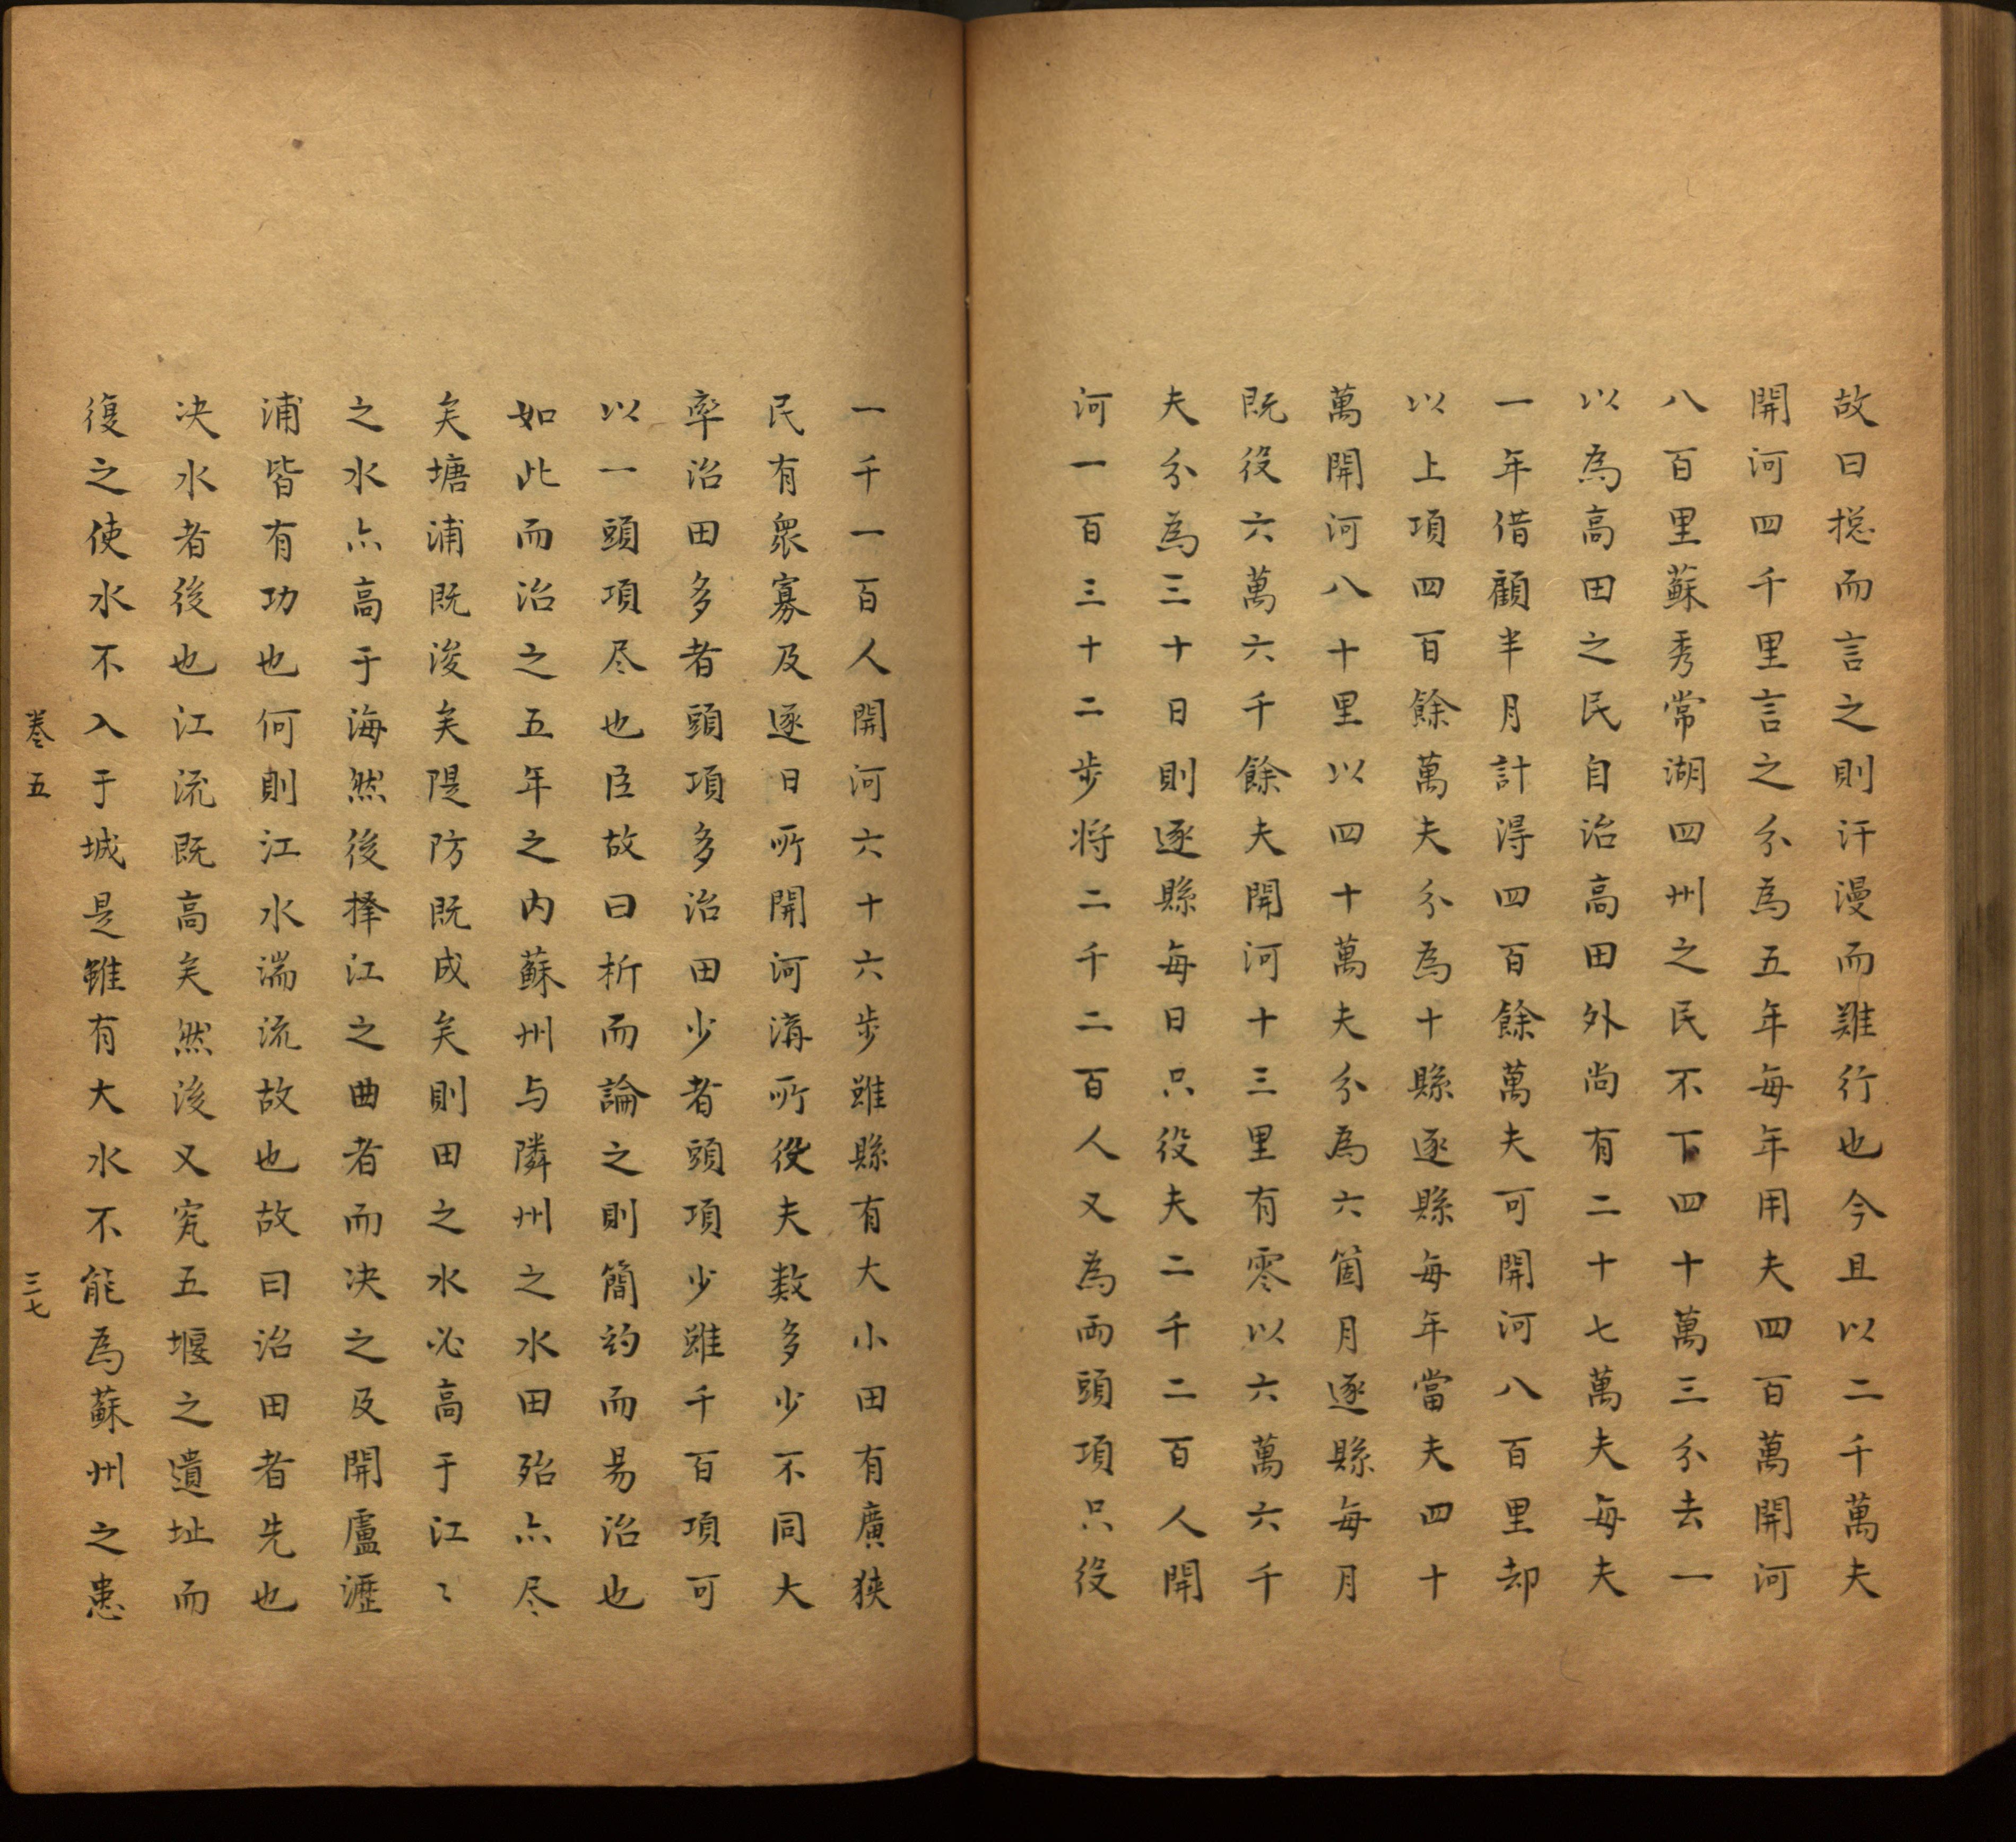 故曰揔而言之則汗漫而難行也今且以二千萬夫
開河四千里言之分為五年每年用夫四百萬開河
八百里蘇秀常湖四州之民不下四十萬三分去一
以為高田之民自治高田外尚有二十七萬夫每夫
一年借顧半月計淂四百餘萬夫可開河八百里却
以上項四百餘萬夫分為十縣逐縣每年當夫四十
萬開河八十里以四十萬夫分為六箇月逐縣每月
既役六萬六千餘夫開河十三里有零以六萬六千
夫分為三十日則逐縣每日只役夫二千二百人開
河一百三十二步将二千二百人又為兩頭項只役
一千一百人開河六十六步雖縣有大小田有廣狹
民有衆寡及逐日所開河溝所役夫数多少不同大
率治田多者頭項多治田少者頭項少雖千百項可
以一頭項尽也臣故曰析而論之則簡約而易治也
如此而治之五年之内蘇州与隣州之水田殆亦尽
矣塘浦既浚矣隄防既成矣則田之水必高于江〻
之水亦高于海然後擇江之曲者而决之及開盧瀝
浦皆有功也何則江水湍流故也故曰治田者先也
决水者後也江流既高矣然後又究五堰之遺址而
復之使水不入于城是雖有大水不能為蘇州之患
卷五
三七